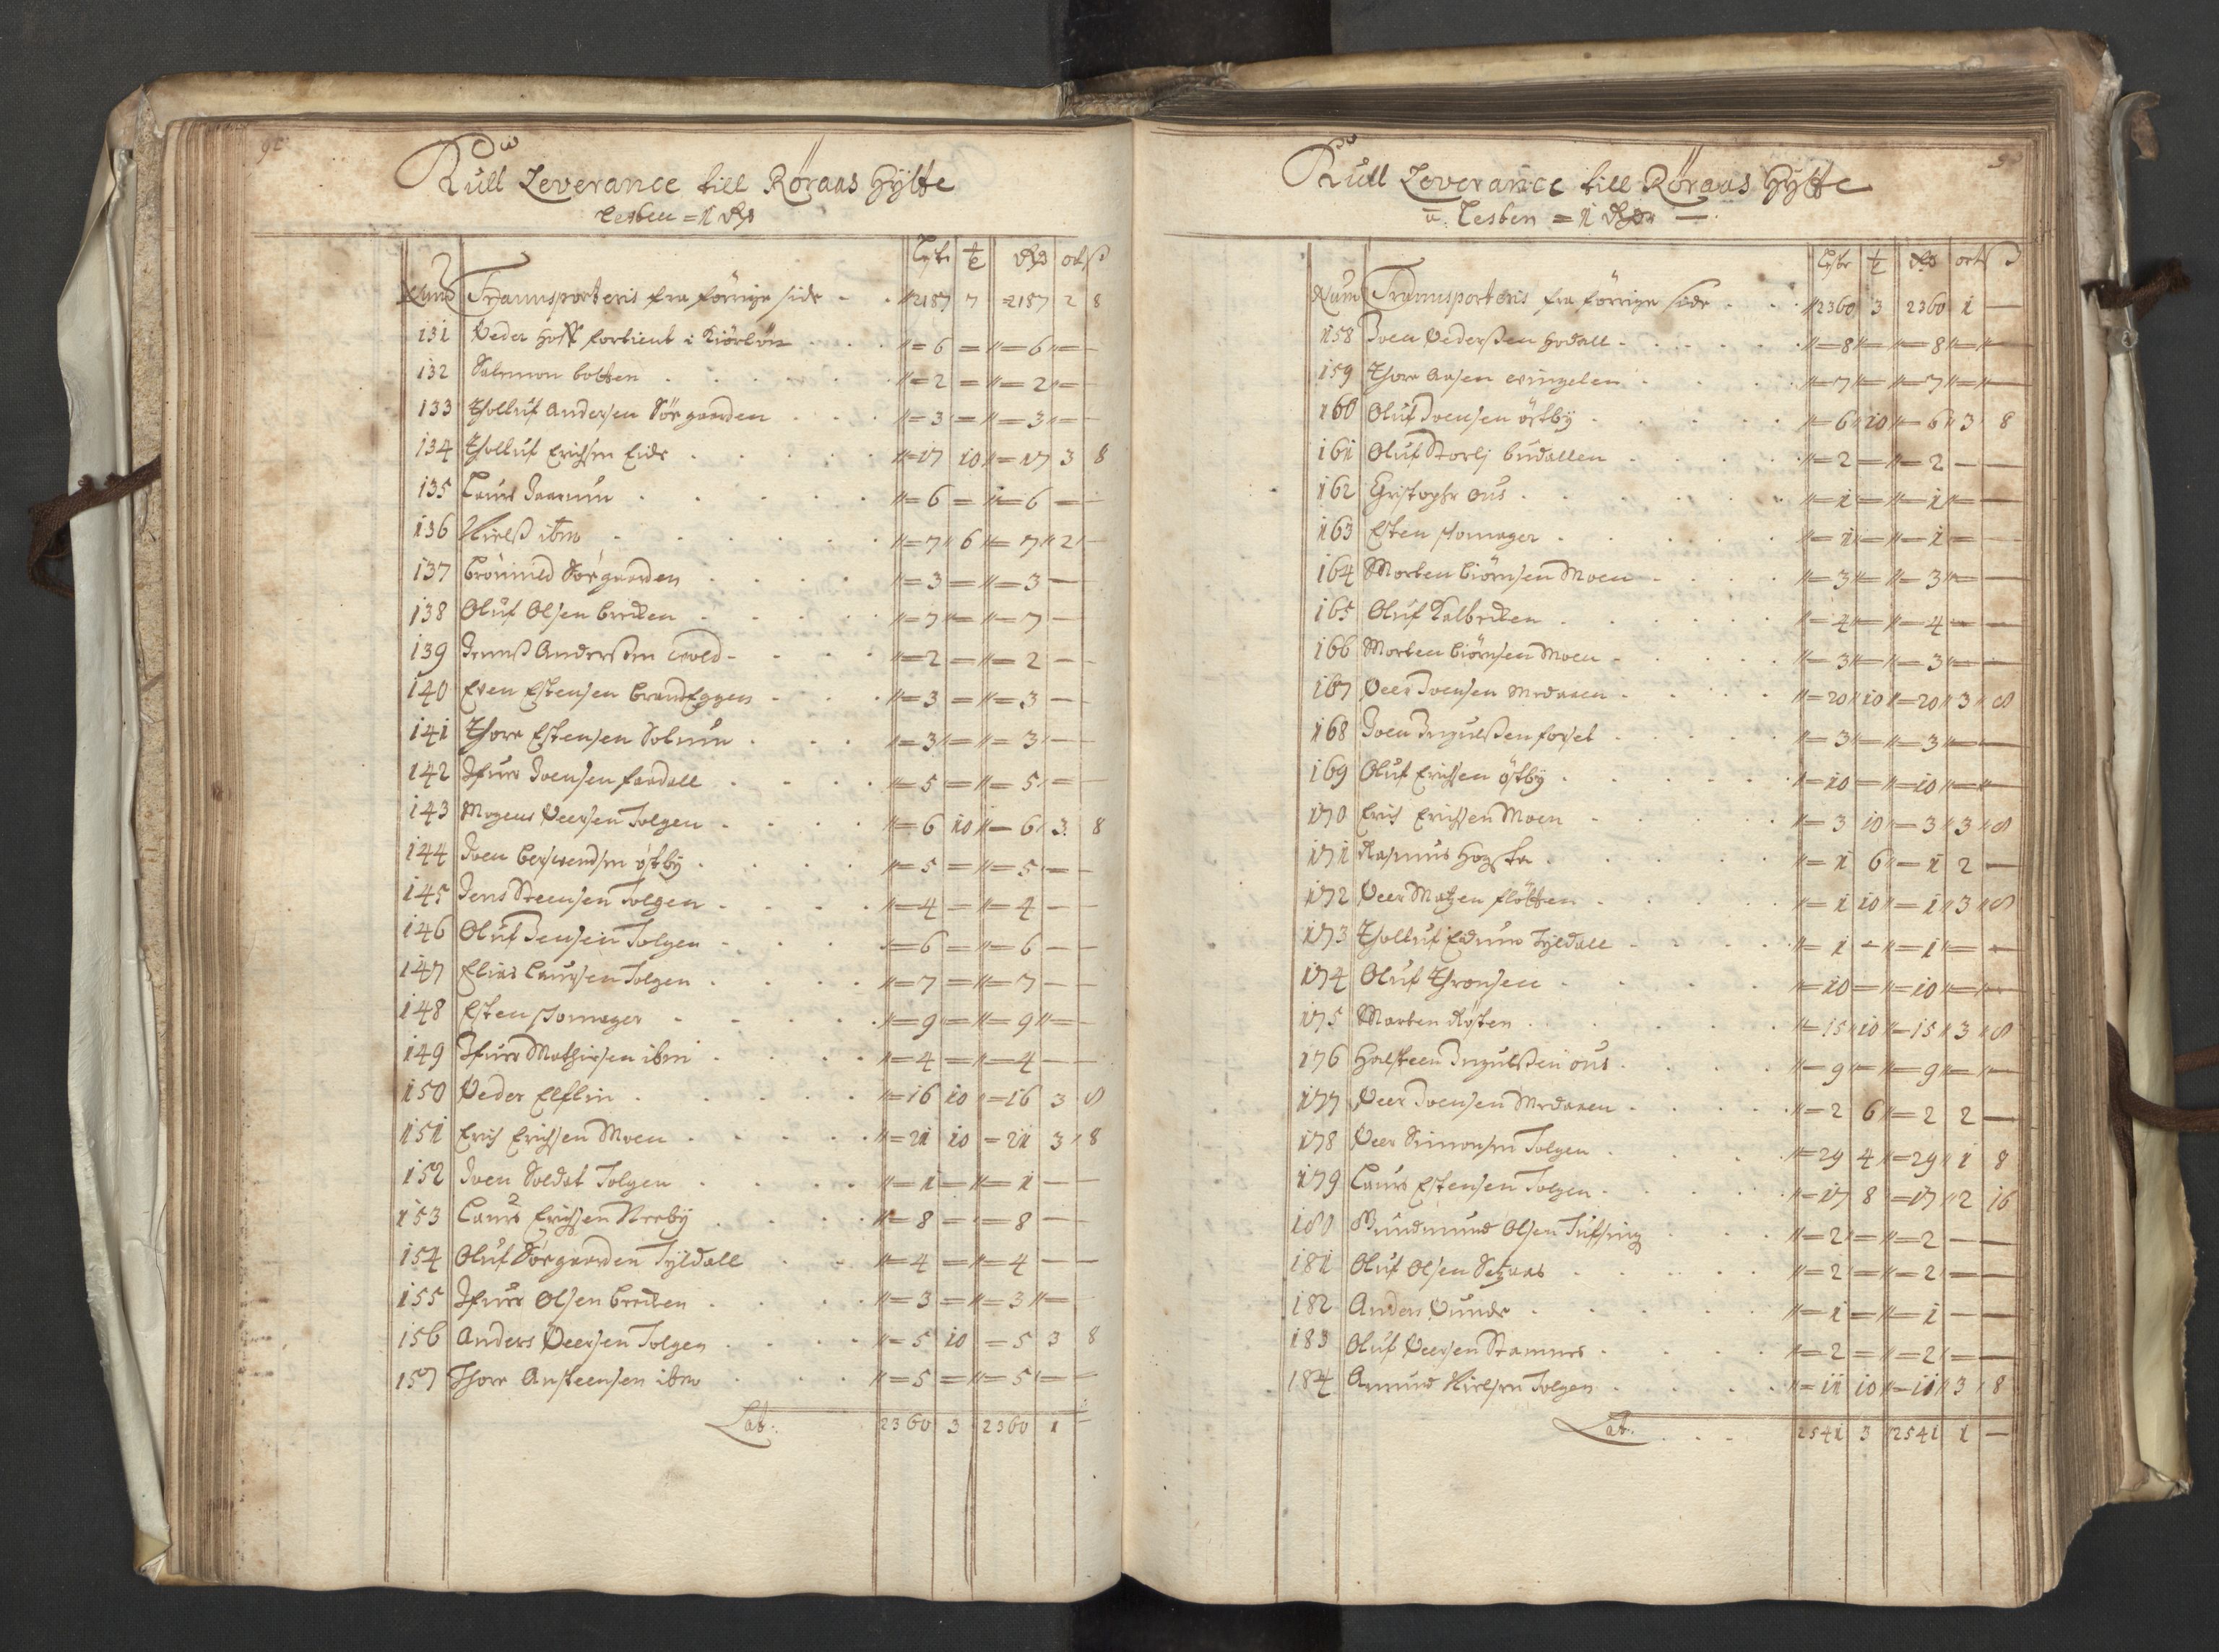 92
Kull Leverance till Röraas Hÿtte
Lesten = 1 Rd
Lester t/c Rd ort ß
Num Transporteris fra forrige side - - 2187 7 2187 2 8
131 Peder Hoff fortient i - - - 6 = 6 =
132 Salomon botten - - - 2 = 2 =
133 Tholluf Andersen Sörgaarden - - - 3 = 3 =
134 Tholluf Erichsen Eide - - - 17 10 17 3 8
135 Laurs - - - 6 = 6 =
136 Nielß ibm - - - 7 6 7 2 -
137 Brönnild Sörgaarden - - - 3 = 3 -
138 Oluf Olsen breken - - - 7 = 7 -
139 Jennß Anderßen - - - 2 = 2 -
140 Even Estensen BrendEggen - - - 3 = 3 -
141 Thore Estensen Solium - - - 3 = 3 -
142 Ifuer Joensen faadall - - - 5 = 5 =
143 Mogens Peersen Tolgen - - - 6 10 6 3 8
144 Joen Berswendsen östbÿ - - - 5 = 5 =
145 Jens Steensen Tolgen - - - 4 = 4 -
146 Oluf Jensen Tolgen - - - 6 = 6 -
147 Elias Laursen Tolgen - - - 7 = 7 -
148 Esten Jomager - - - 9 = 9 =
149 Ifuer Mathiesen ibm - - - 4 = 4 -
150 Peder Elflin - - - 16 10 16 3 8
151 Erich Erichsen Moen - - - 21 10 21 3 8
152 Joen Soldat Tolgen - - - 1 = 1 -
153 Laurs Erichsen Neebÿ - - - 8 = 8 -
154 Oluf Sörgaarden Tÿldall - - - 4 = 4 -
155 Ifuer Olsen breken - - - 3 = 3 =
156 Anders Peersen Tolgen - - - 5 10 5 3 8
157 Thore Ansteensen ibm - - - 5 = 5 =
Lat: 2360 3 2360 1 =
Kull Leverance till Röraas Hÿtte
a. Lesten = 1 Rdr
Lester t/c Rd ort ß
Num Transporteris fra forrige side - - 2360 3 2360 1 -
158 Joen Pederßen Hodall - - - 8 = 8 =
159 Thore Aasen evingelen - - - 7 = 7 =
160 Oluf Joensen östbÿ - - - 6 10 6 3 8
161 Oluf Storlj budallen - - - 2 = 2 -
162 Christopher ous - - - 1 = 1 =
163 Esten Jomager - - - 1 = 1 =
164 Morten Biörnsen Moen - - - 3 = 3 =
165 Oluf Kalbecken - - - 4 = 4 -
166 Morten Biörnsen Moen - - - 3 = 3 =
167 Peer Joensen Medaaen - - - 20 10 20 3 8
168 Joen Ingulßen forset - - - 3 = 3 =
169 Oluf Erichsen östbÿ - - - 10 = 10 =
170 Erich Erichsen Moen - - - 3 10 3 3 8
171 Rasmus - - - 1 6 1 2 -
172 Peer Matzen flötten - - - 1 10 1 3 8
173 Tholluf Tÿldall - - - 1 = 1 =
174 Oluf Thronsen - - - 10 = 10 =
175 Morten Rösten - - - 15 10 15 3 8
176 Halsteen Ingulßen ous - - - 9 = 9 =
177 Peer Joensen Medaaen - - - 2 6 2 2 -
178 Peer Simonsen Tolgen - - - 29 4 29 1 8
179 Laurs Estensen Tolgen - - - 17 8 17 2 16
180 Gundmund Olsen Tufsing - - - 2 = 2 -
181 Oluf Olsen Setaas - - - 2 = 2 =
182 Anders Punde - - - 1 = 1 -
183 Oluf Peersen Stammes - - - 2 = 2 =
184 Amund Nielsen Tolgen - - - 11 10 11 3 8
Lat: - - - 2541 3 2541 1 -